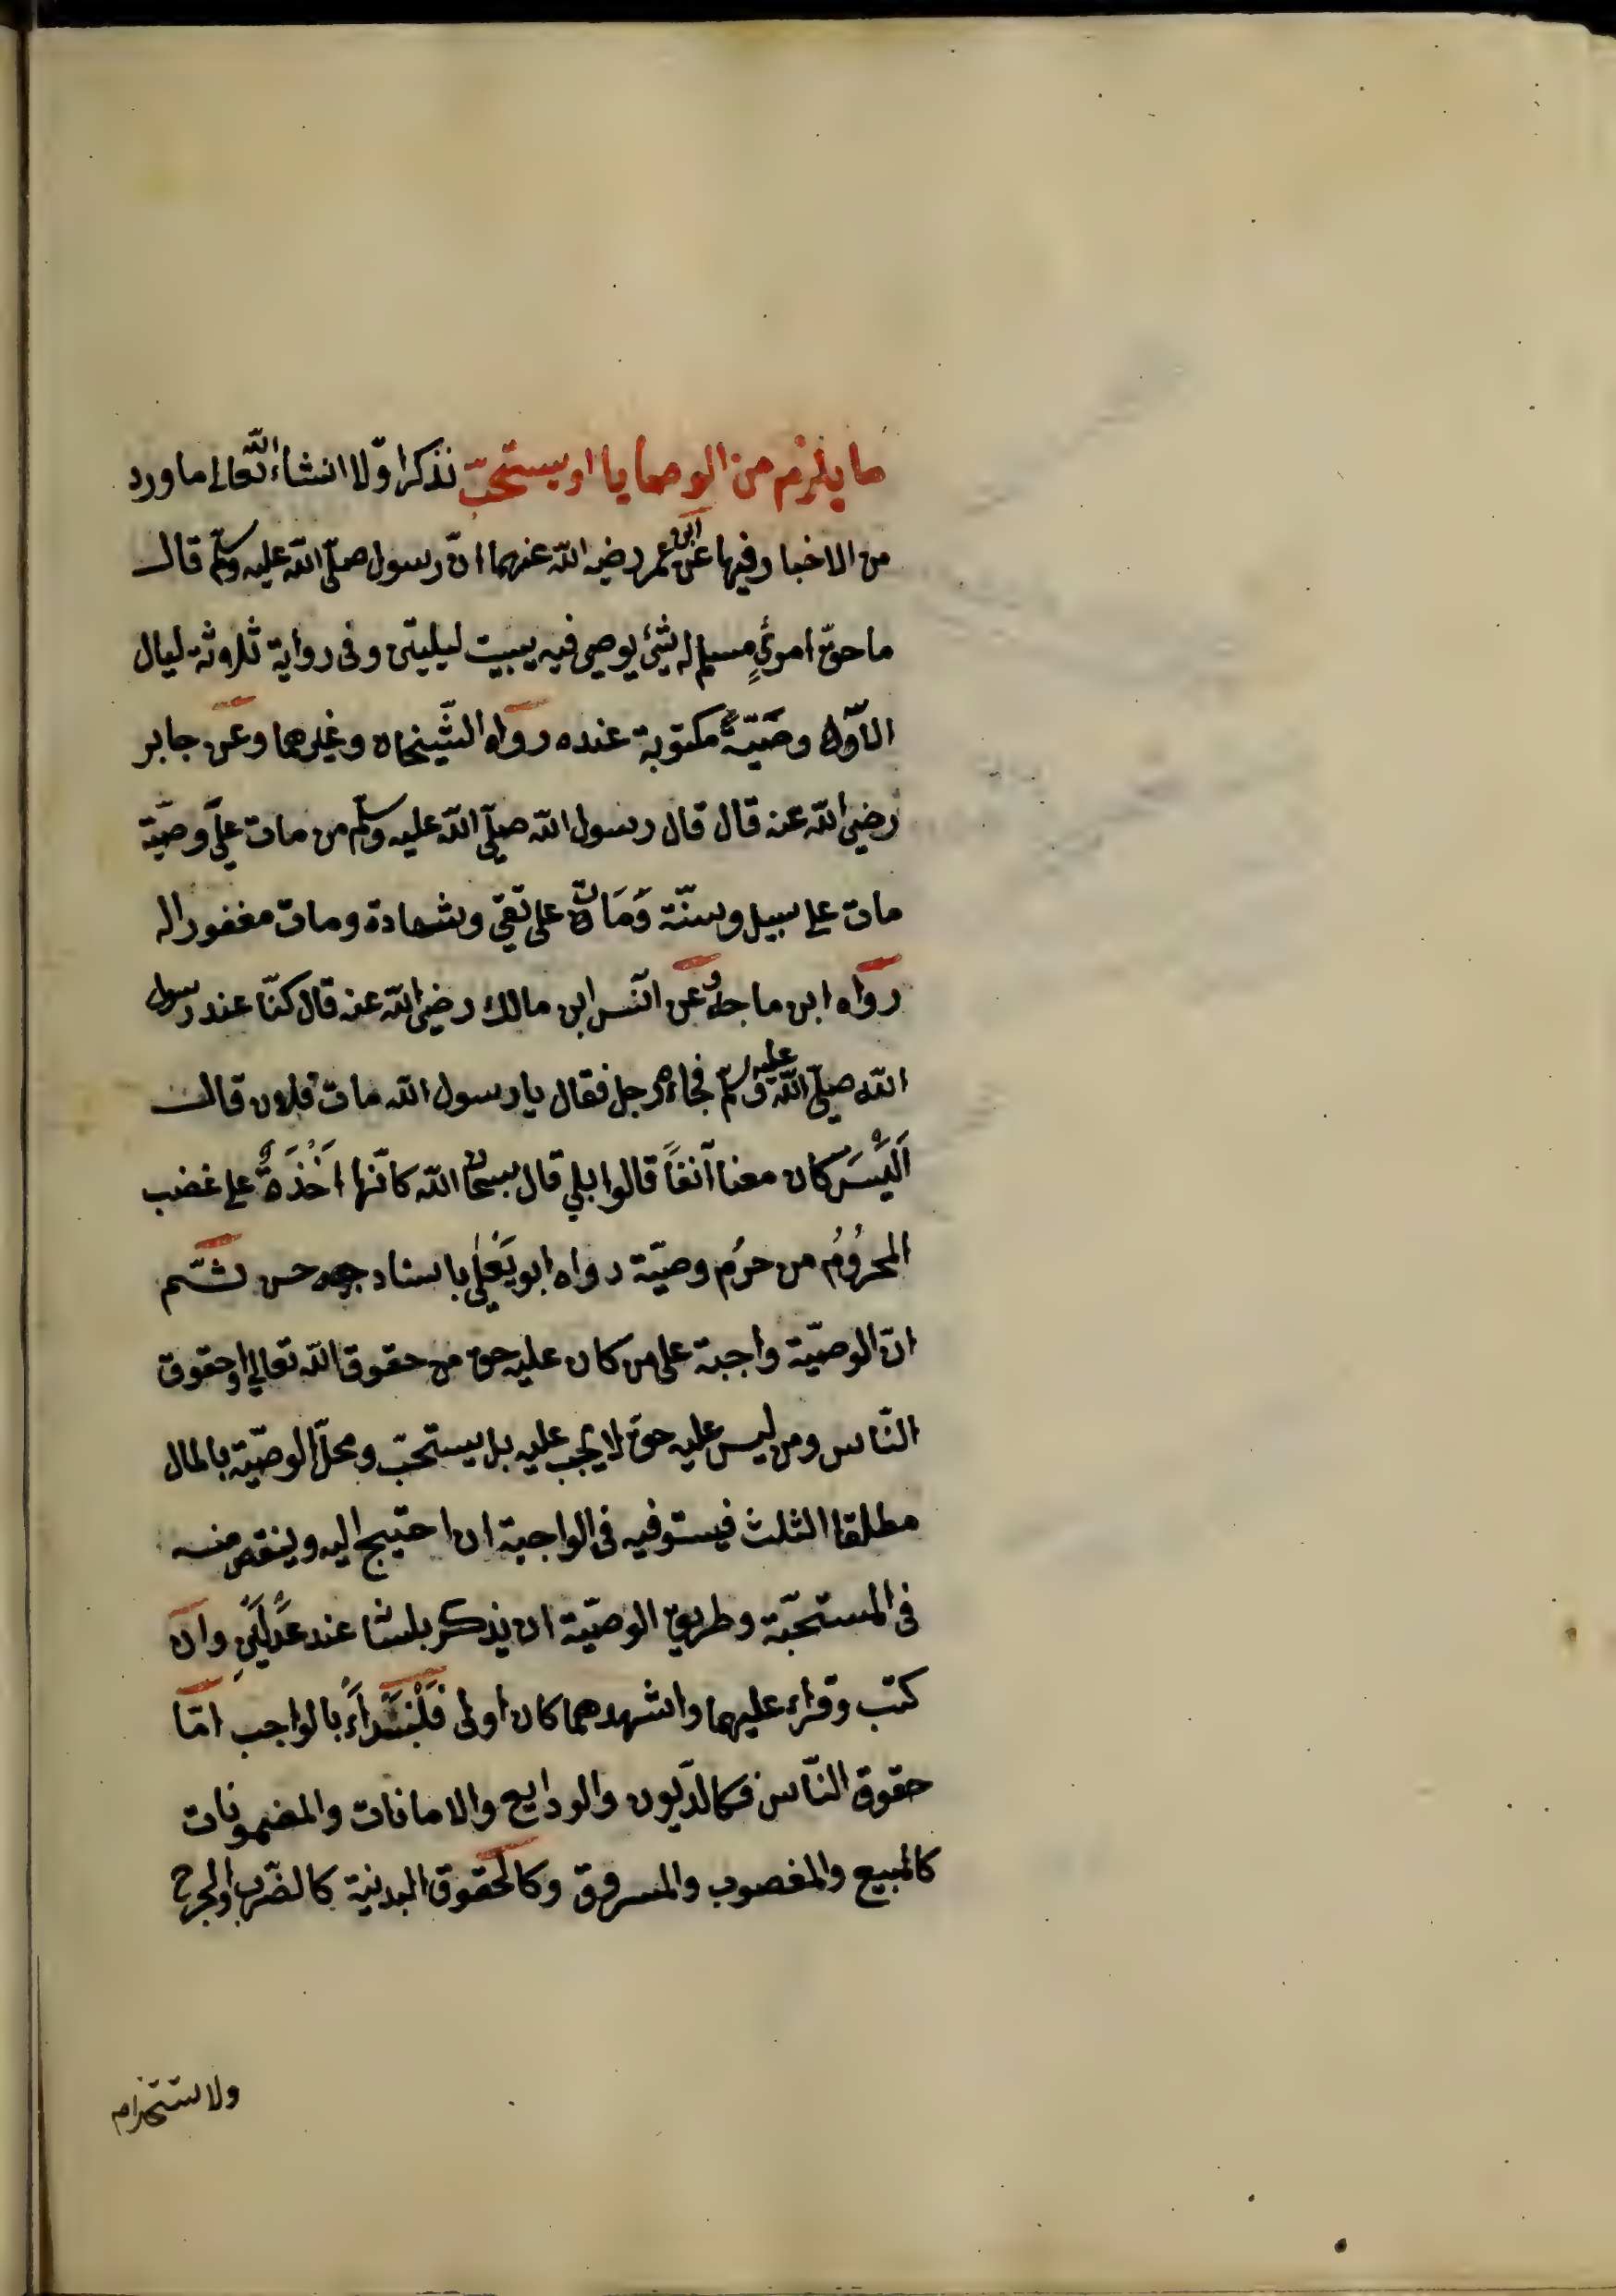 ما يلزم من الوصايا او يستحبّ نذكر اوّلا انشاء الله تعالى ما ورد
من الاخبار فيها عن ابن عمر رضي الله عنهما انّ رسول صلّى الله عليه وسلّم قال
ما حقّ امرئٍ مسلم له شئ يوصي فيه يبيت ليلتين وفى رواية ثلاثة ليال
الّا و وصيّةٌ مكتوبة عنده رواه الشّيخان وغيرهما وعن جابر
رضي الله عنه قال قال رسول الله صلّى الله عليه وسلّم من مات على وصيّة
مات على سبيل وسنّة وَمَات على تقي وشهادة ومات مغفورا له
رواه ابن ماجه وعن انس ابن مالك رضي الله عنه قال كنّا عند رسول
الله صلّى الله عليه وسلّم فجاءه رجل فقال يا رسول الله مات فلان قال
اَلَيْسَ كان معنا آنفاً قالوا بلي قال سبحان الله كانّها اَخْذَةٌ على غضب
المحرُومُ من حرُم وصيّة رواه ابو يَعْلٰى باسناد حسن ثمّ
انّ الوصيّة واجبة على من كان عليه حق من حقوق الله تعالى او حقوق
النّاس ومن ليس عليه حقّ لا يجب عليه بل يستحبّ ومحلّ الوصيّة بالمال
مطلقا الثلث فيستوفيه فى الواجبة ان احتيج اليه وينقص منه
فى المستحبّة وطريق الوصيّة ان يذكر بلسانه عند عَدْلَيْنِ وان
كتب وقراء عليهما واشهدهما كان اولى فَلْنَبْدَاءْ بالواجب امّا
حقوق النّاس فكالدّيون والودايع والامانات والمضمونات
كالمبيع والمغصوب والمسروق وكالحقوق البدنية كالضّرب والجرح
ولاستخدام